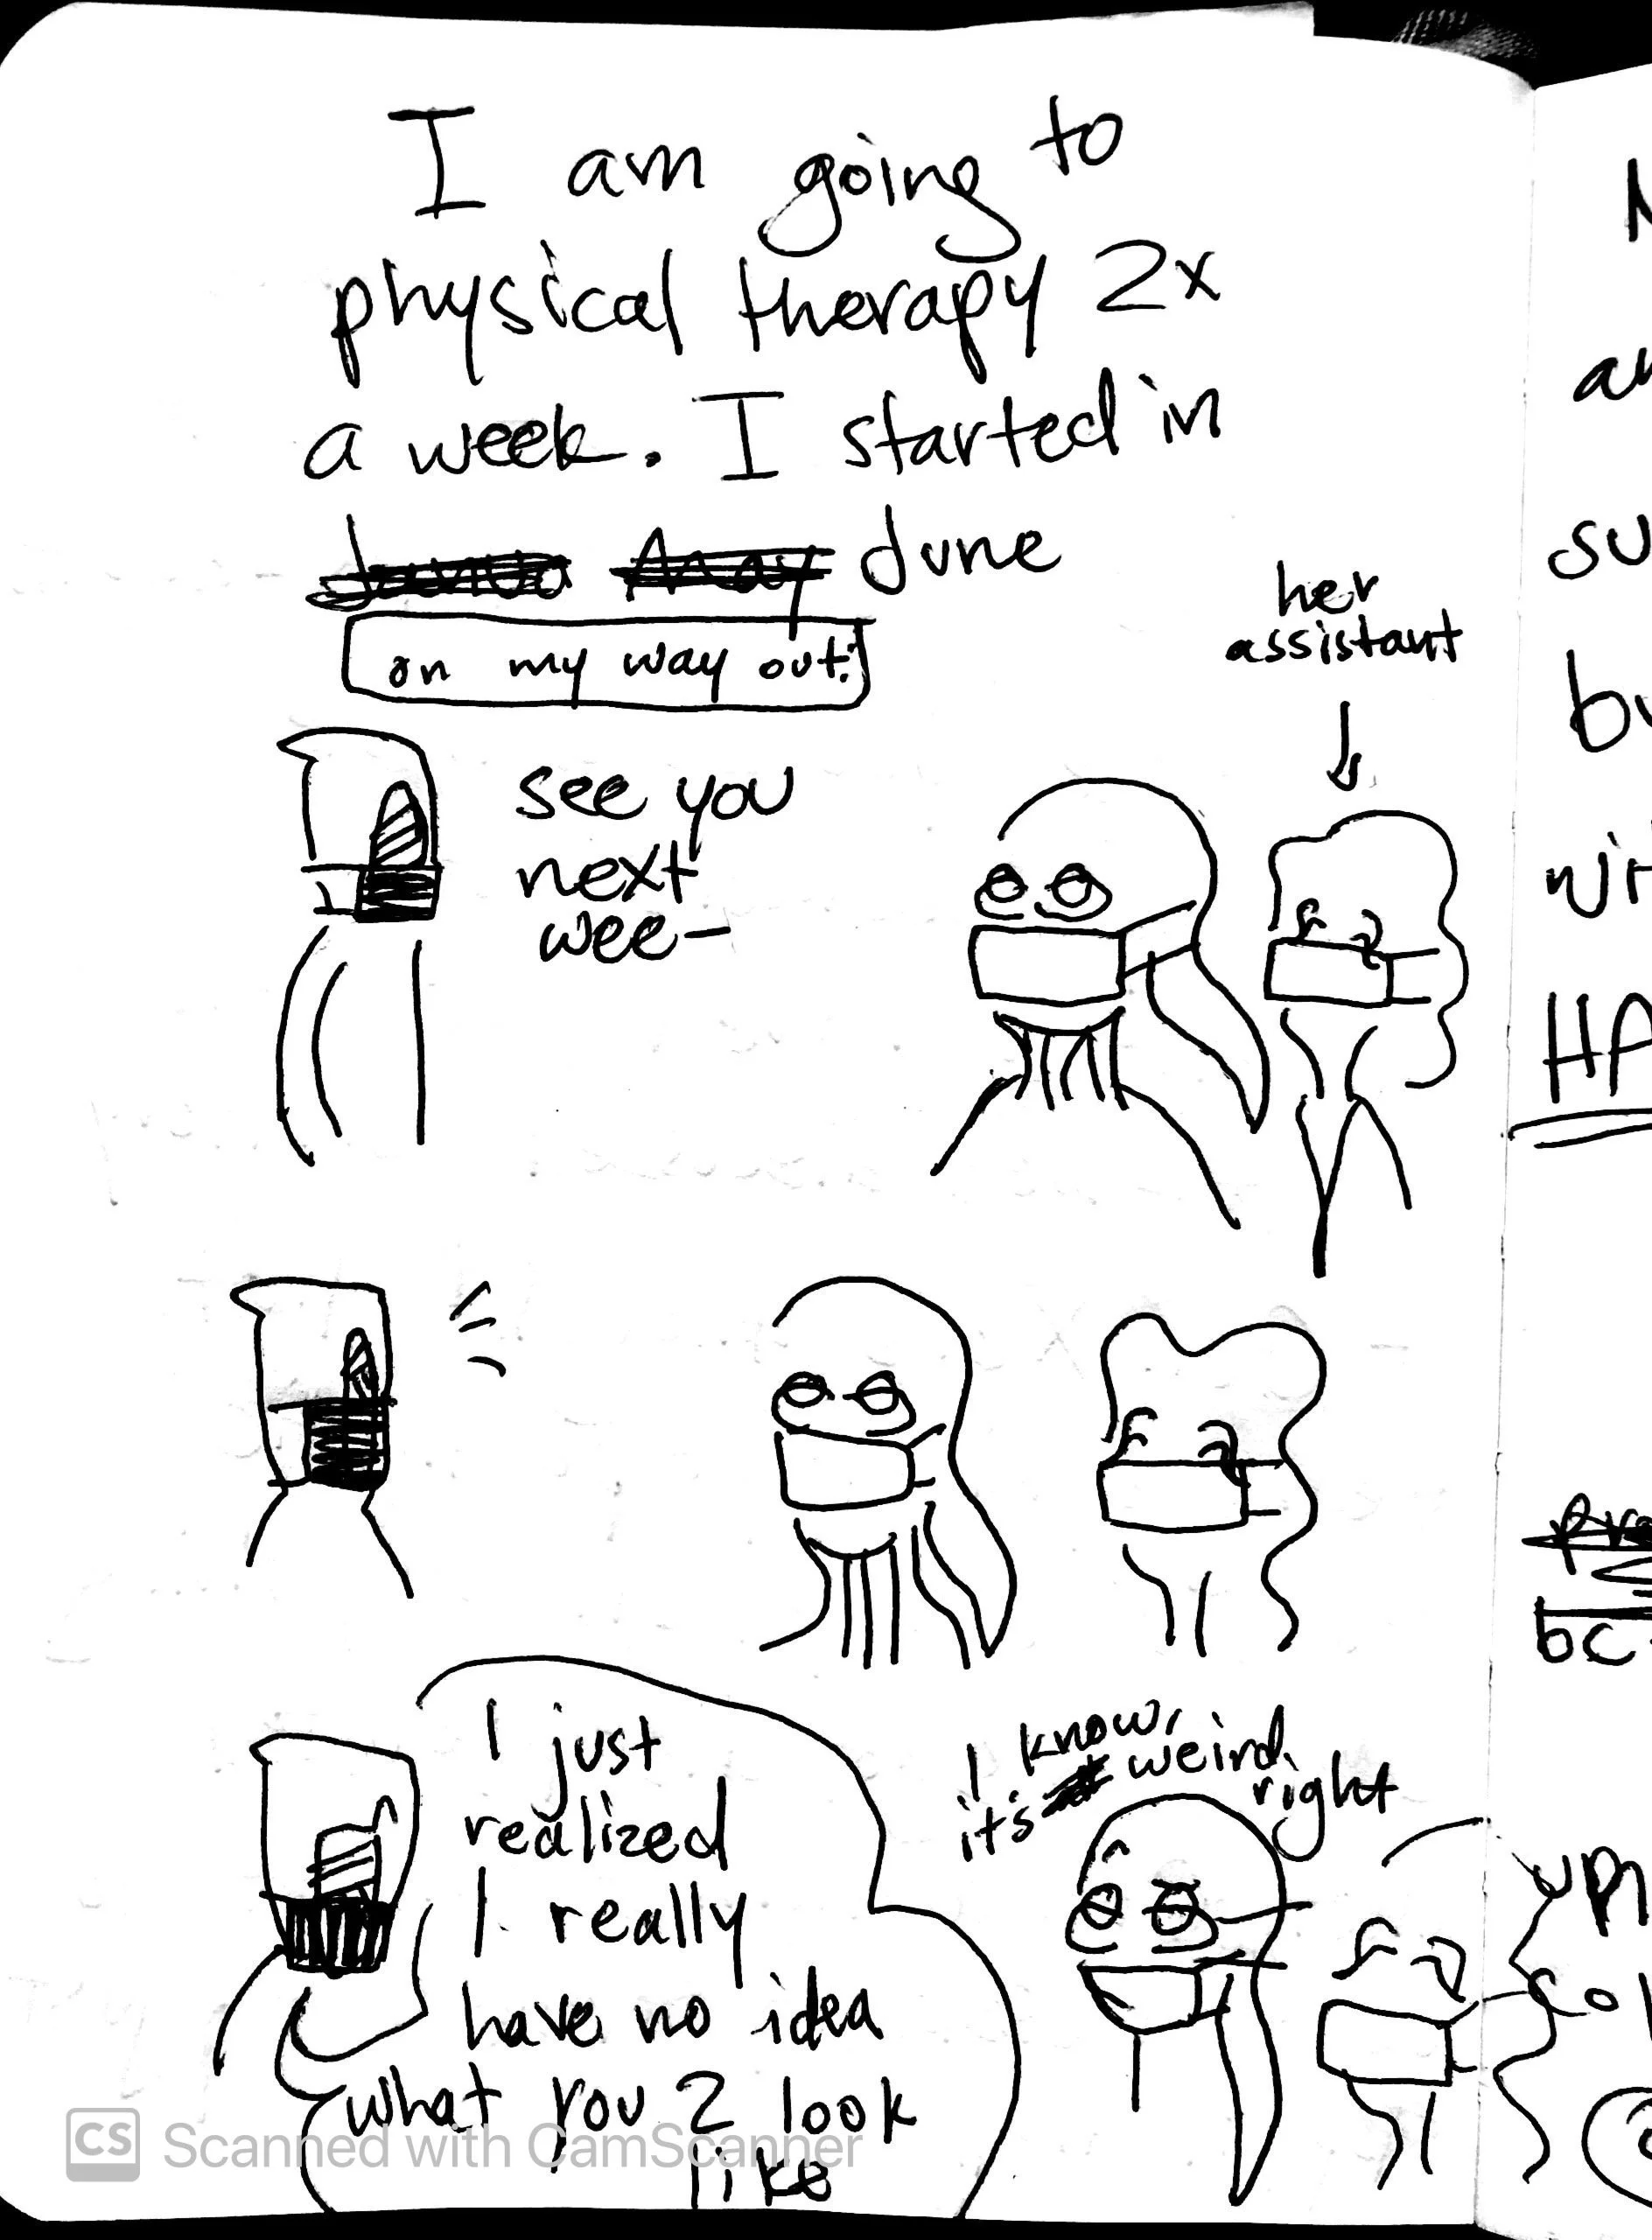 I am going to
physical therapy 2x
a week. I started in
May June
on my way out:
her
assistant
see you
next
wee-
I just
realized
I really
have no idea
what you 2 look
like
I know,
it's weird,
right
an
su
bu
wit
HA
bc
CS Scanned with CamScanner